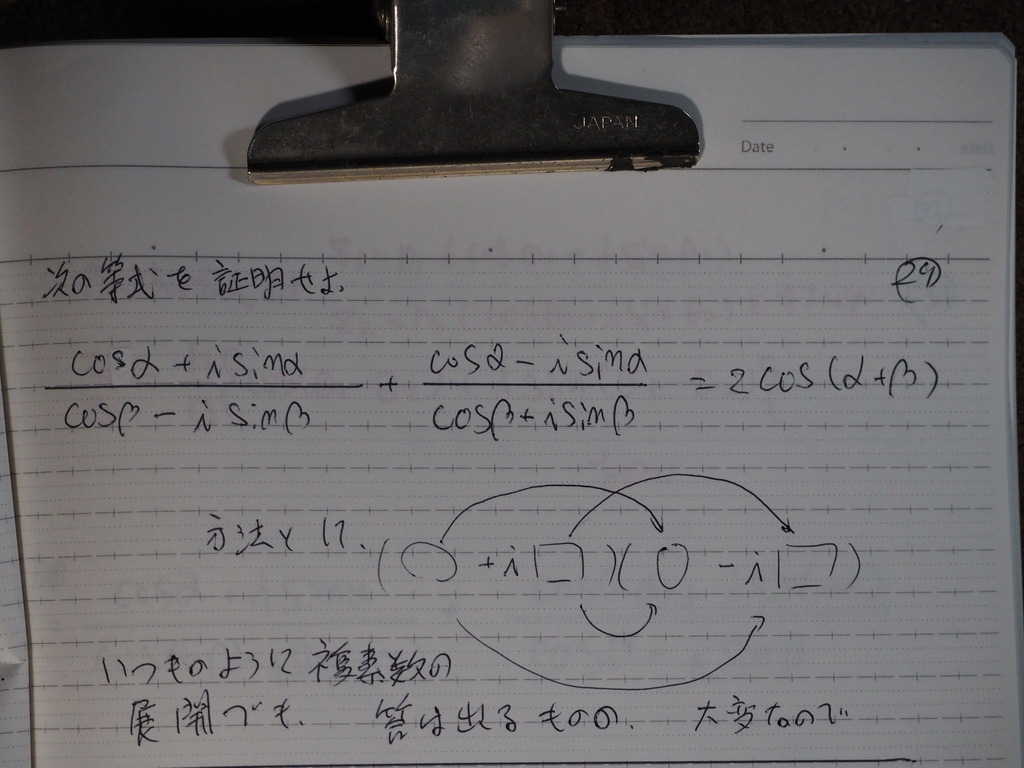 JAPAN
Date
次の等式を証明せよ.
cosα + i sinα / cosβ - i sinβ + cosα - i sinα / cosβ + i sinβ = 2cos(α+β)
方法として、(○ + i□)(○ - i□)
いつものように複素数の
展開でも、答は出るものの、大変なので